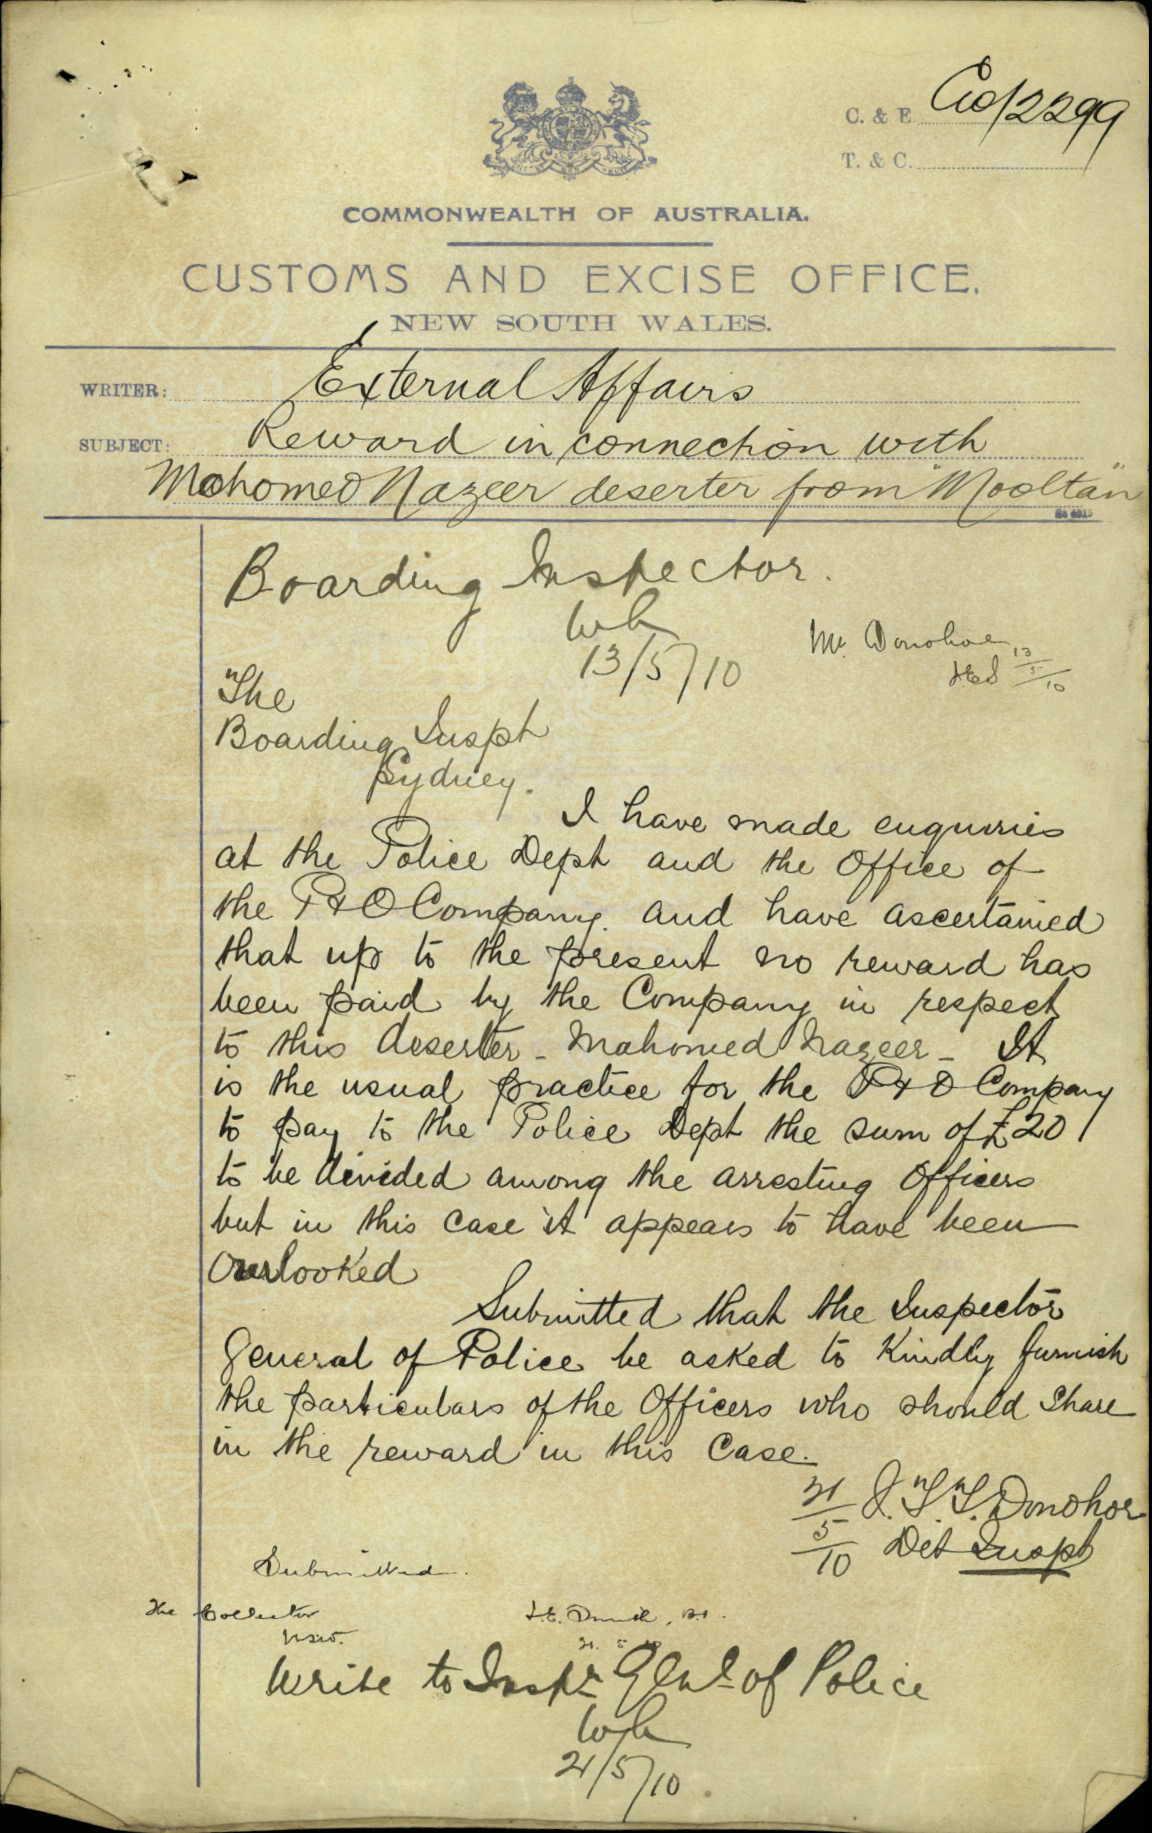 C. & E. C10/2299
T. & C.
COMMONWEALTH OF AUSTRALIA.
CUSTOMS AND EXCISE OFFICE.
NEW SOUTH WALES.
WRITER: External Affairs
SUBJECT: Reward in connection with
Mahomed Nazeer deserter from "Mooltan"
Boarding Inspector.
13/5/10
Mr. Donohoe
13/5/10
The
Boarding Inspt
Sydney.
I have made enquiries
at the Police Dept and the Office of
the P&O Company and have ascertained
that up to the present no reward has
been paid by the Company in respect
to this deserter - Mahomed Nazeer - It
is the usual practice for the P&O Company
to pay to the Police Dept the sum of £20
to be divided among the arresting Officers
but in this case it appears to have been
Overlooked
Submitted that the Inspector
General of Police be asked to Kindly furnish
the particulars of the Officers who should Share
in the reward in this Case.
21/5/10 J.T.T. Donohoe
Det Inspt
Submitted.
The Collector
NSW.
Write to Inspr Genl of Police
21/5/10.